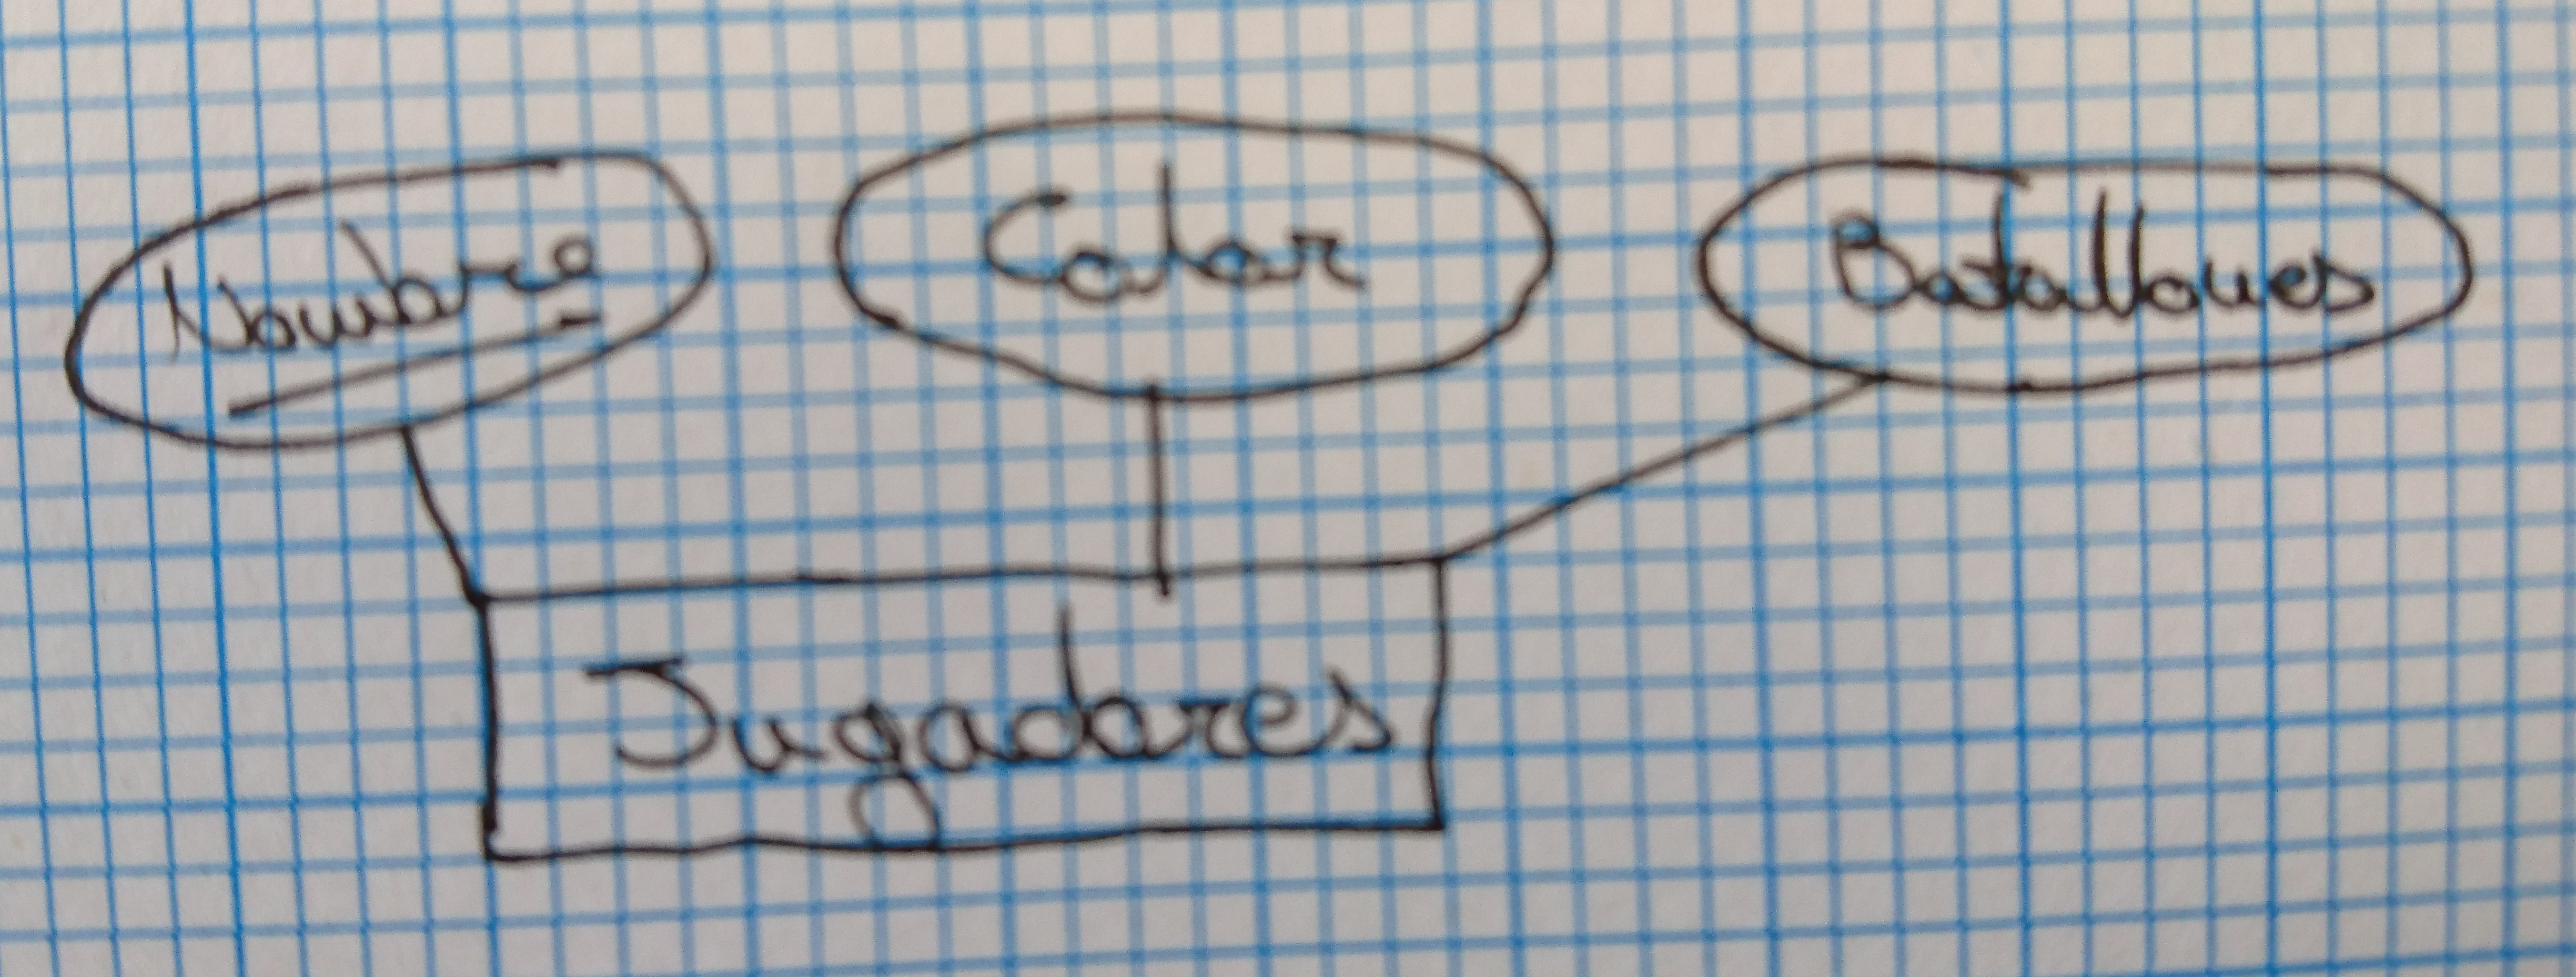 Nombre
Color
Batallones
Jugadores